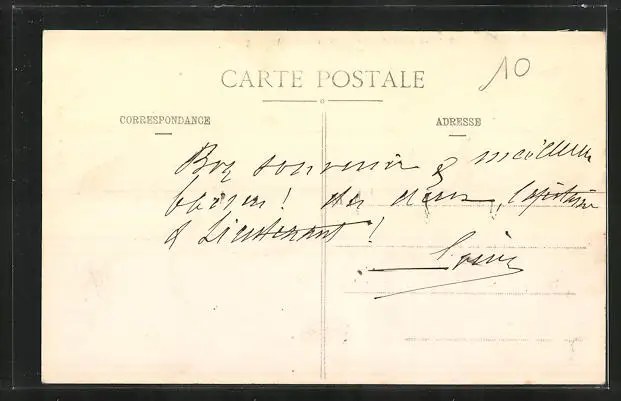 CARTE POSTALE
10
CORRESPONDANCE
ADRESSE
Bon souvenir & meilleurs
baisers! des deux, Capitaine
& Lieutenant!